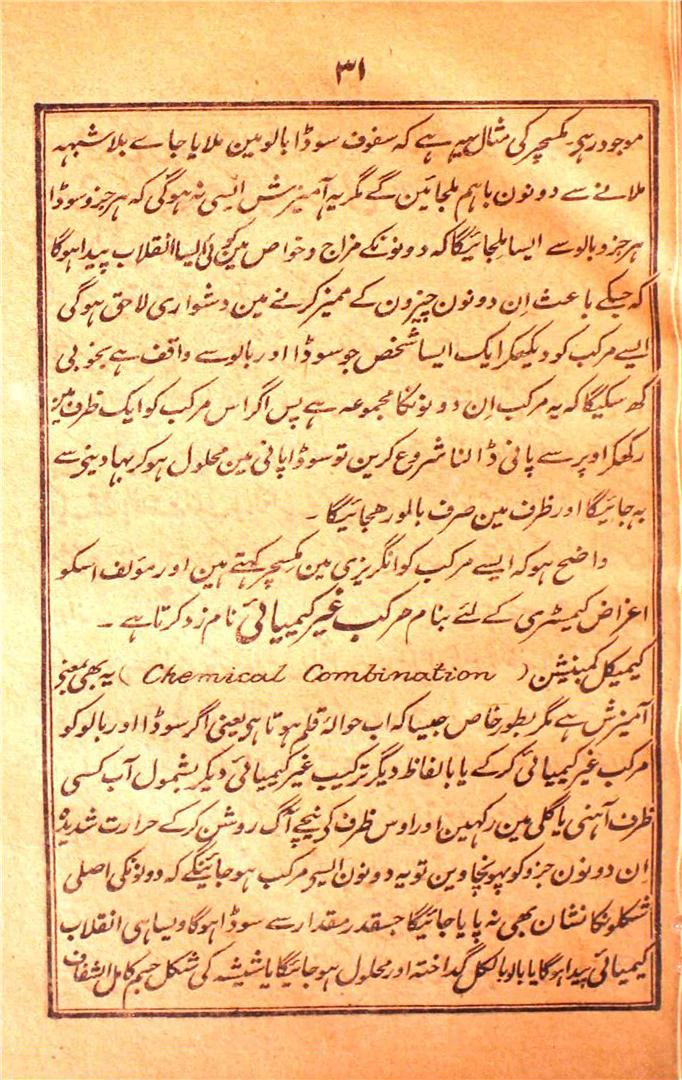 ۳۱
موجود رہی۔ مکسچر کی مثال یہہ ہے کہ سفوف سوڈا بالو مین ملایا جاے بلاشبہہ
ملانے سے دونون باہم ملجائین گے مگر یہ آمیزش ایسی نہ ہوگی کہ ہر جزو سوڈا
ہر جزو بالو سے ایسا ملجائیگا کہ دونونکے مزاج و خواص مین کوئی ایسا انقلاب پیدا ہوگا
کہ جسکے باعث اِن دونون چیزون کے ممیز کرنے مین دشواری لاحق ہوگی
ایسے مرکب کو دیکھکر ایک ایسا شخص جو سوڈا اور بالو سے واقف ہے بخوبی
کہہ سکیگا کہ یہ مرکب اِن دونونکا مجموعہ ہے پس اگر اس مرکب کو ایک ظرف مین
رکھکر اوپر سے پانی ڈالنا شروع کرین تو سوڈا پانی مین محلول ہوکر بہا دینے سے
بہ جائیگا اور ظرف مین صرف بالو رہجائیگا ۔
واضح ہو کہ ایسے مرکب کو انگریزی مین مکسچر کہتے ہین اور مؤلف اسکو
اغراض کیمسٹری کے لئے بنام مرکب غیر کیمیائی نام زد کرتا ہے ۔
کیمیکل کمبنیشن ( Chemical Combination ) یہ بھی بمعنی
آمیزش ہے مگر بطور خاص جیسا کہ اب حوالۂ قلم ہوتا ہی یعنی اگر سوڈا اور بالو کو
مرکب غیر کیمیائی کرکے یا بالفاظ دیگر ترکیب غیر کیمیائی دیکر بشمول آب کسی
ظرف آہنی یا گلی مین رکہین اور اوس ظرف کی نیچے آگ روشن کرکے حرارت شدیدہ
اِن دونون جزو کو پہونچاوین تو یہ دونون ایسی مرکب ہوجائینگے کہ دونونکی اصلی
شکلونکا نشان بھی نہ پایا جائیگا جسقدر مقدار سے سوڈا ہوگا ویسا ہی انقلاب
کیمیائی پیدا ہوگا یا بالو بالکل گداختہ اور محلول ہوجائیگا یا شیشہ کی شکل جسم کامل الشفاف